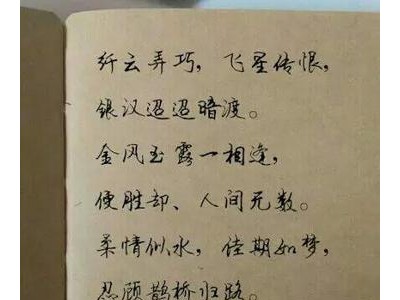 纤云弄巧，飞星传恨，
银汉迢迢暗渡。
金风玉露一相逢，
便胜却、人间无数。
柔情似水，佳期如梦，
忍顾鹊桥归路。